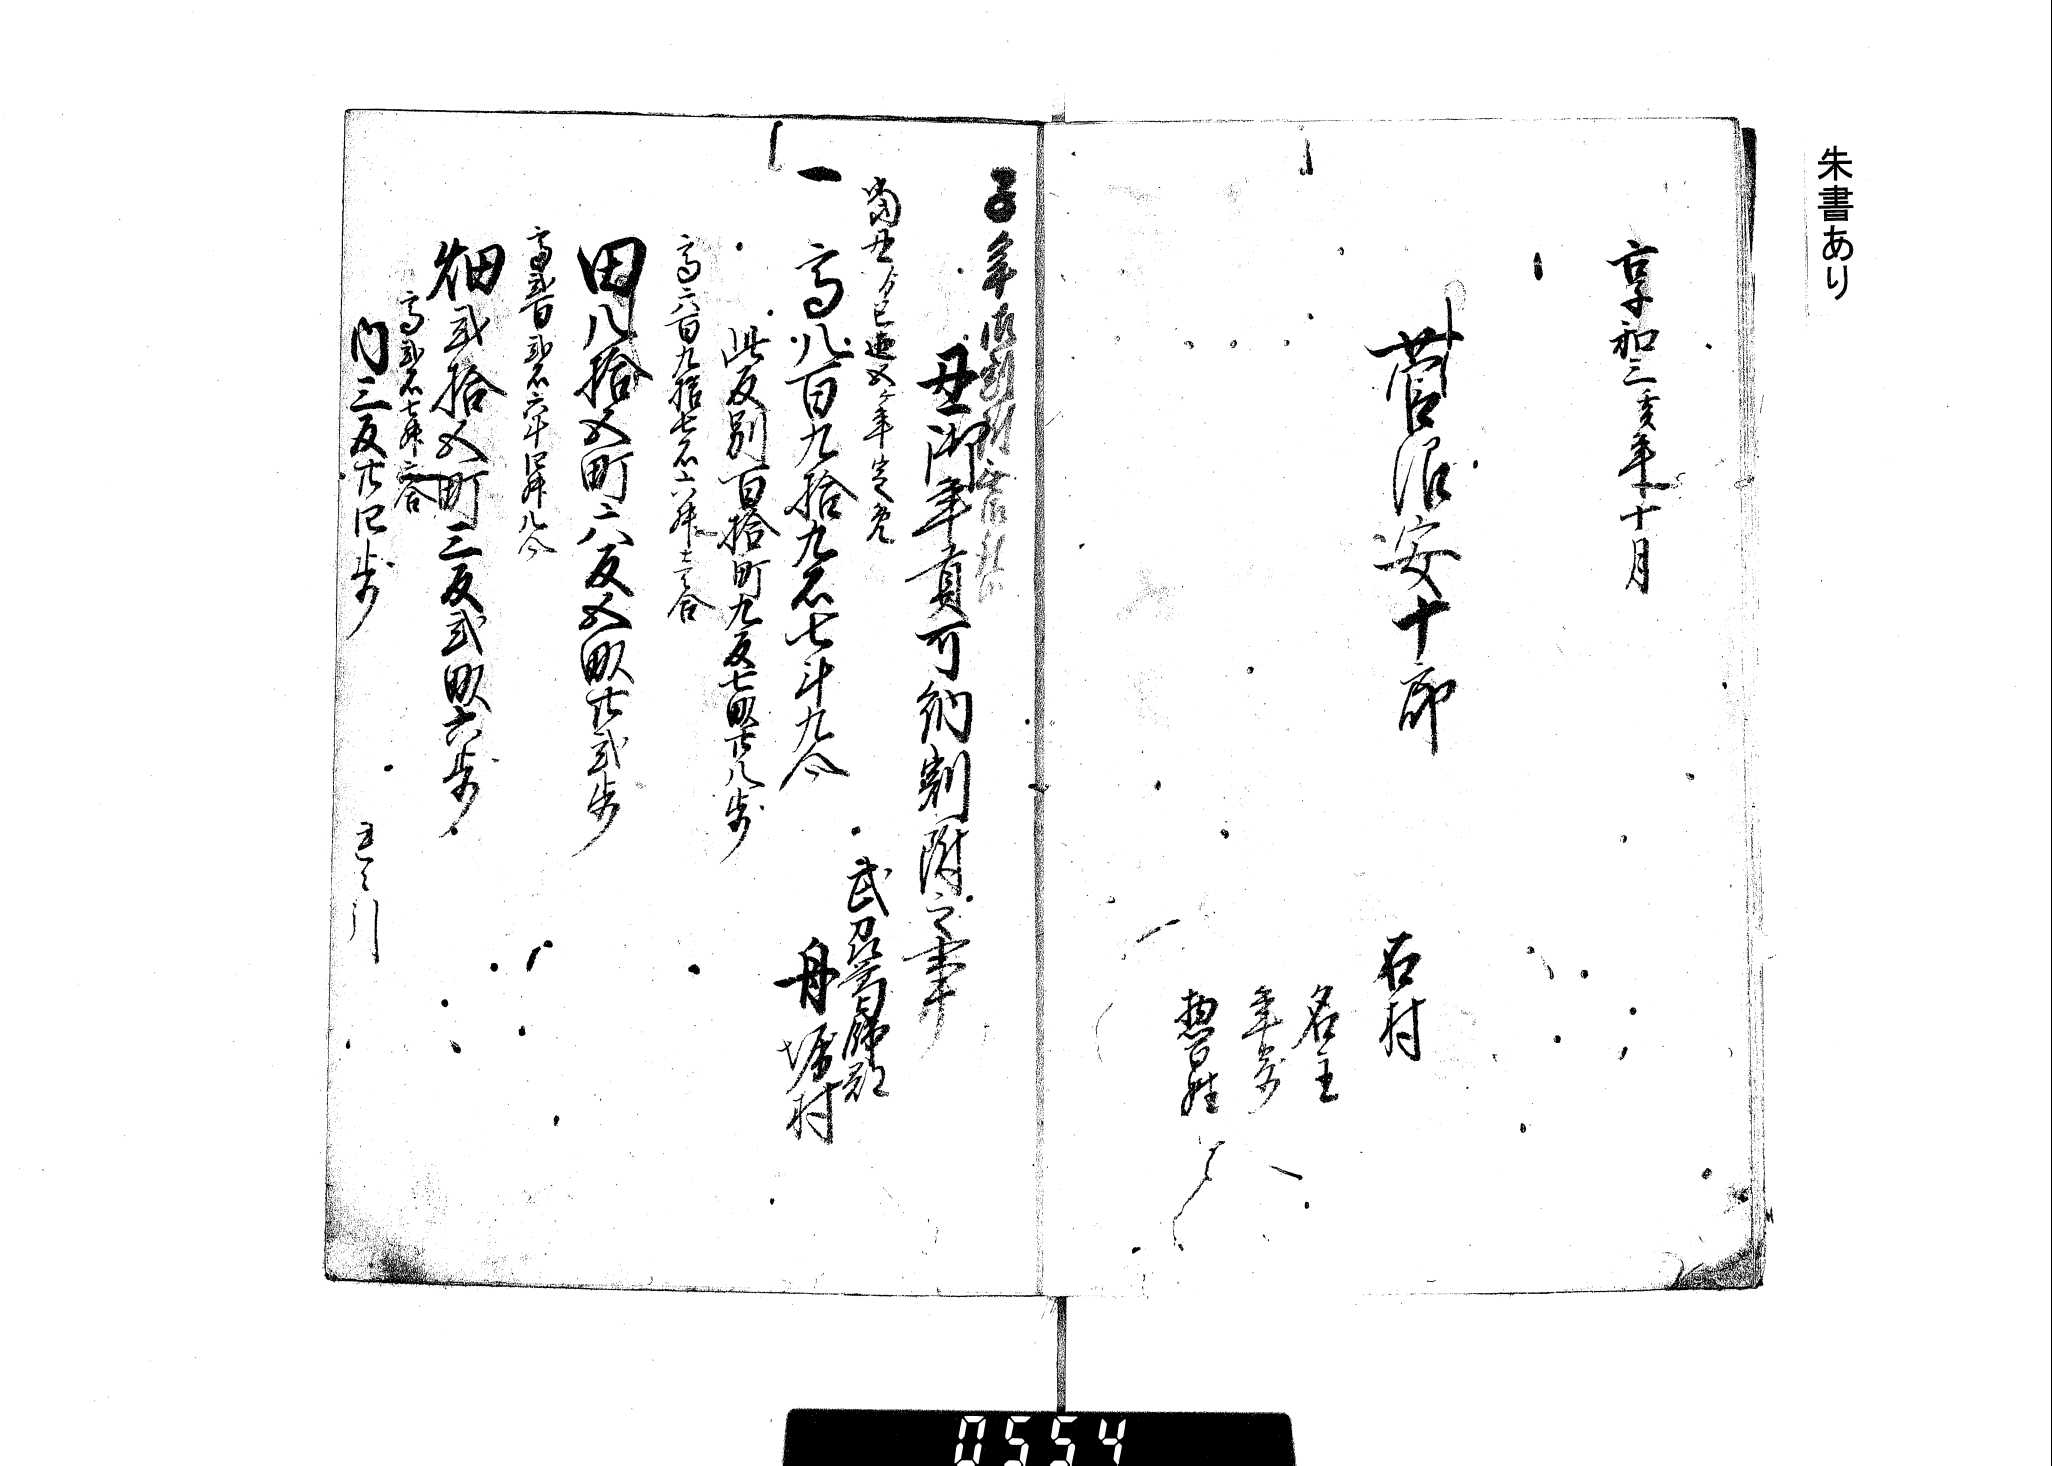 朱書あり
享和三亥年十月
菅沼安十郎
右村
名主
年寄
惣百姓
子年御割附
丑御年貢可納割附之事
当丑ゟ巳迄五ケ年定免
武州葛飾郡
舟堀村
一高八百九拾九石七斗九合
此反別百拾町九反七畝廿八歩
高六百九拾七石六升壱合
田八拾五町六反五畝廿弐歩
高弐百弐石六斗四升八合
畑弐拾五町三反弐畝六歩
高弐石七升六合
内三反廿四歩
0554